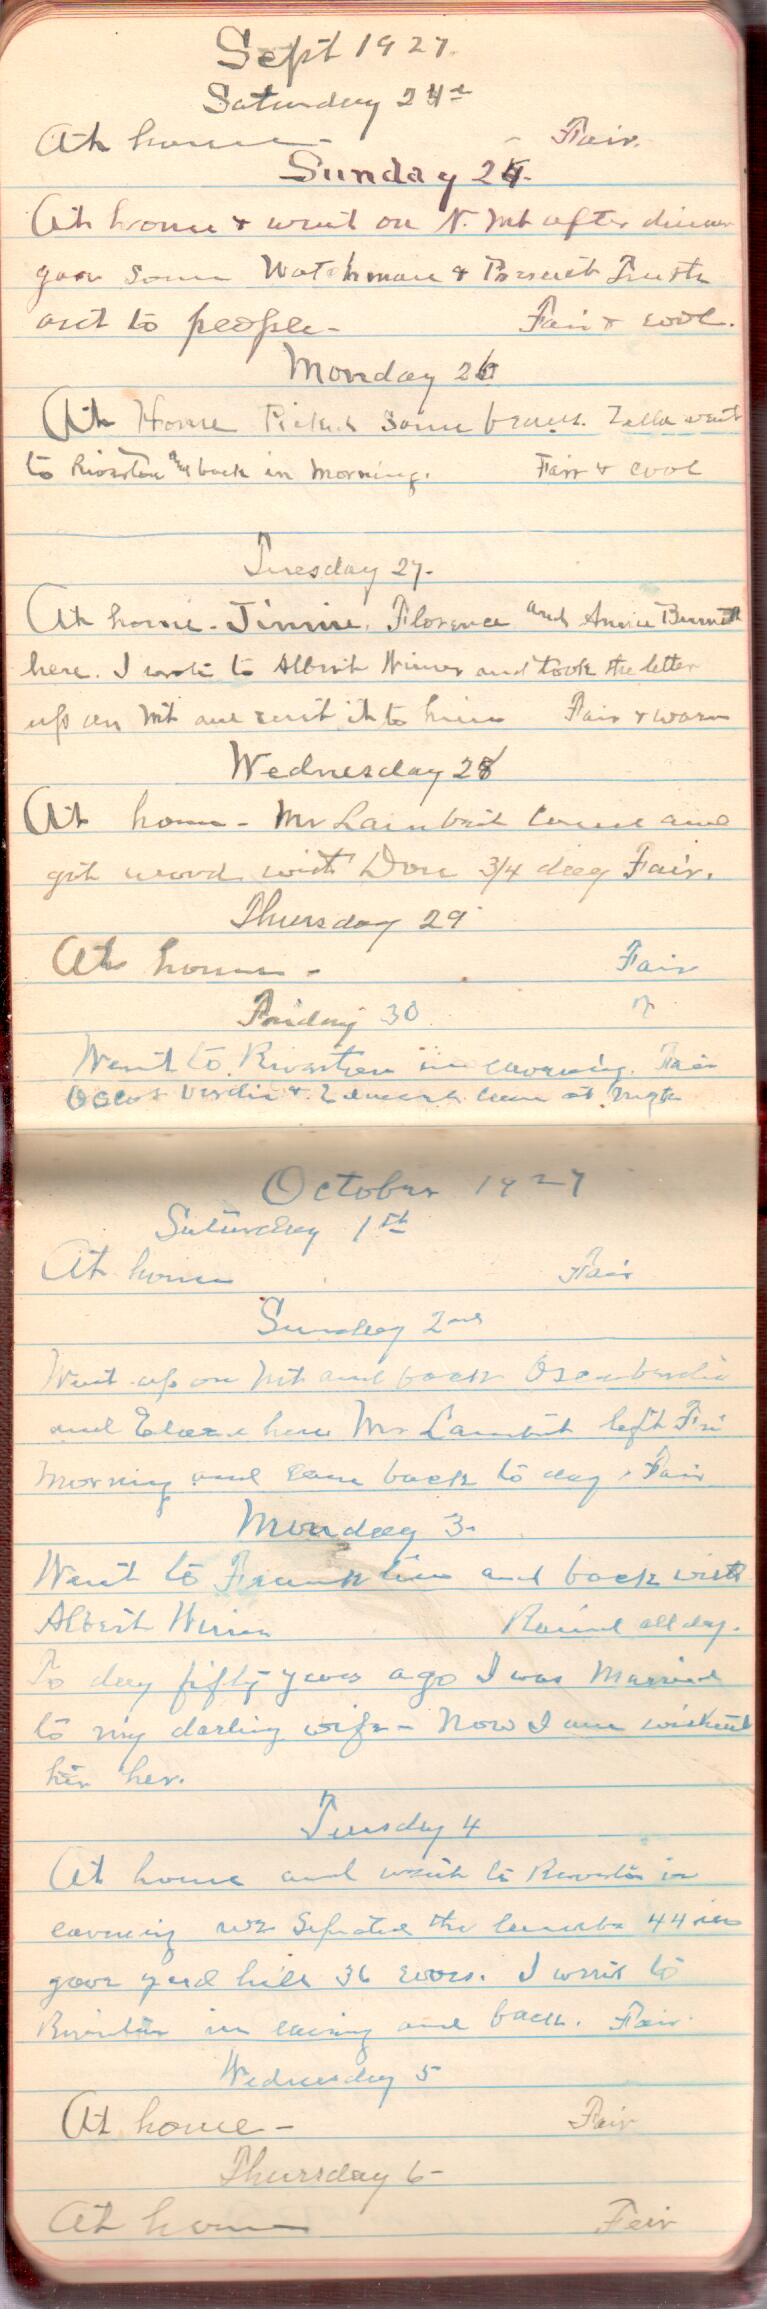 Sept 1927.
Saturday 24th
At home - Fair.
Sunday 25.
At home & went on N. Mt after dinner
gave some Watchman & Present Truth
out to people - Fair & cool.
Monday 26
At Home Picked some beans. Zella went
to Riverton and back in morning. Fair & cool
Tuesday 27.
At home - Jimmie, Florence and Annie Burnett
here. I wrote to Albert and took the letter
up on Mt and sent it to him Fair & warm
Wednesday 28
At home - Mr Lambert came and
got wood with Don 3/4 day Fair.
Thursday 29
At home - Fair
Friday 30
Went to Riverton in evening. Fair
Oscar Verdie & came at night
October 1927
Saturday 1st
At home Fair
Sunday 2nd
Went up on Mt and back Oscar Verdie
and here Mr Lambert left Fri
morning and came back to day. Fair
Monday 3-
Went to Franklin and back with
Albert Rained all day.
To day fifty years ago I was Married
to my darling wife - Now I am without
her.
Tuesday 4
At home and went to Riverton in
evening we Seperated the lambs 44 in
yard hill 36 ewes. I went to
Riverton in evening and back. Fair.
Wednesday 5
At home - Fair
Thursday 6-
At home Fair